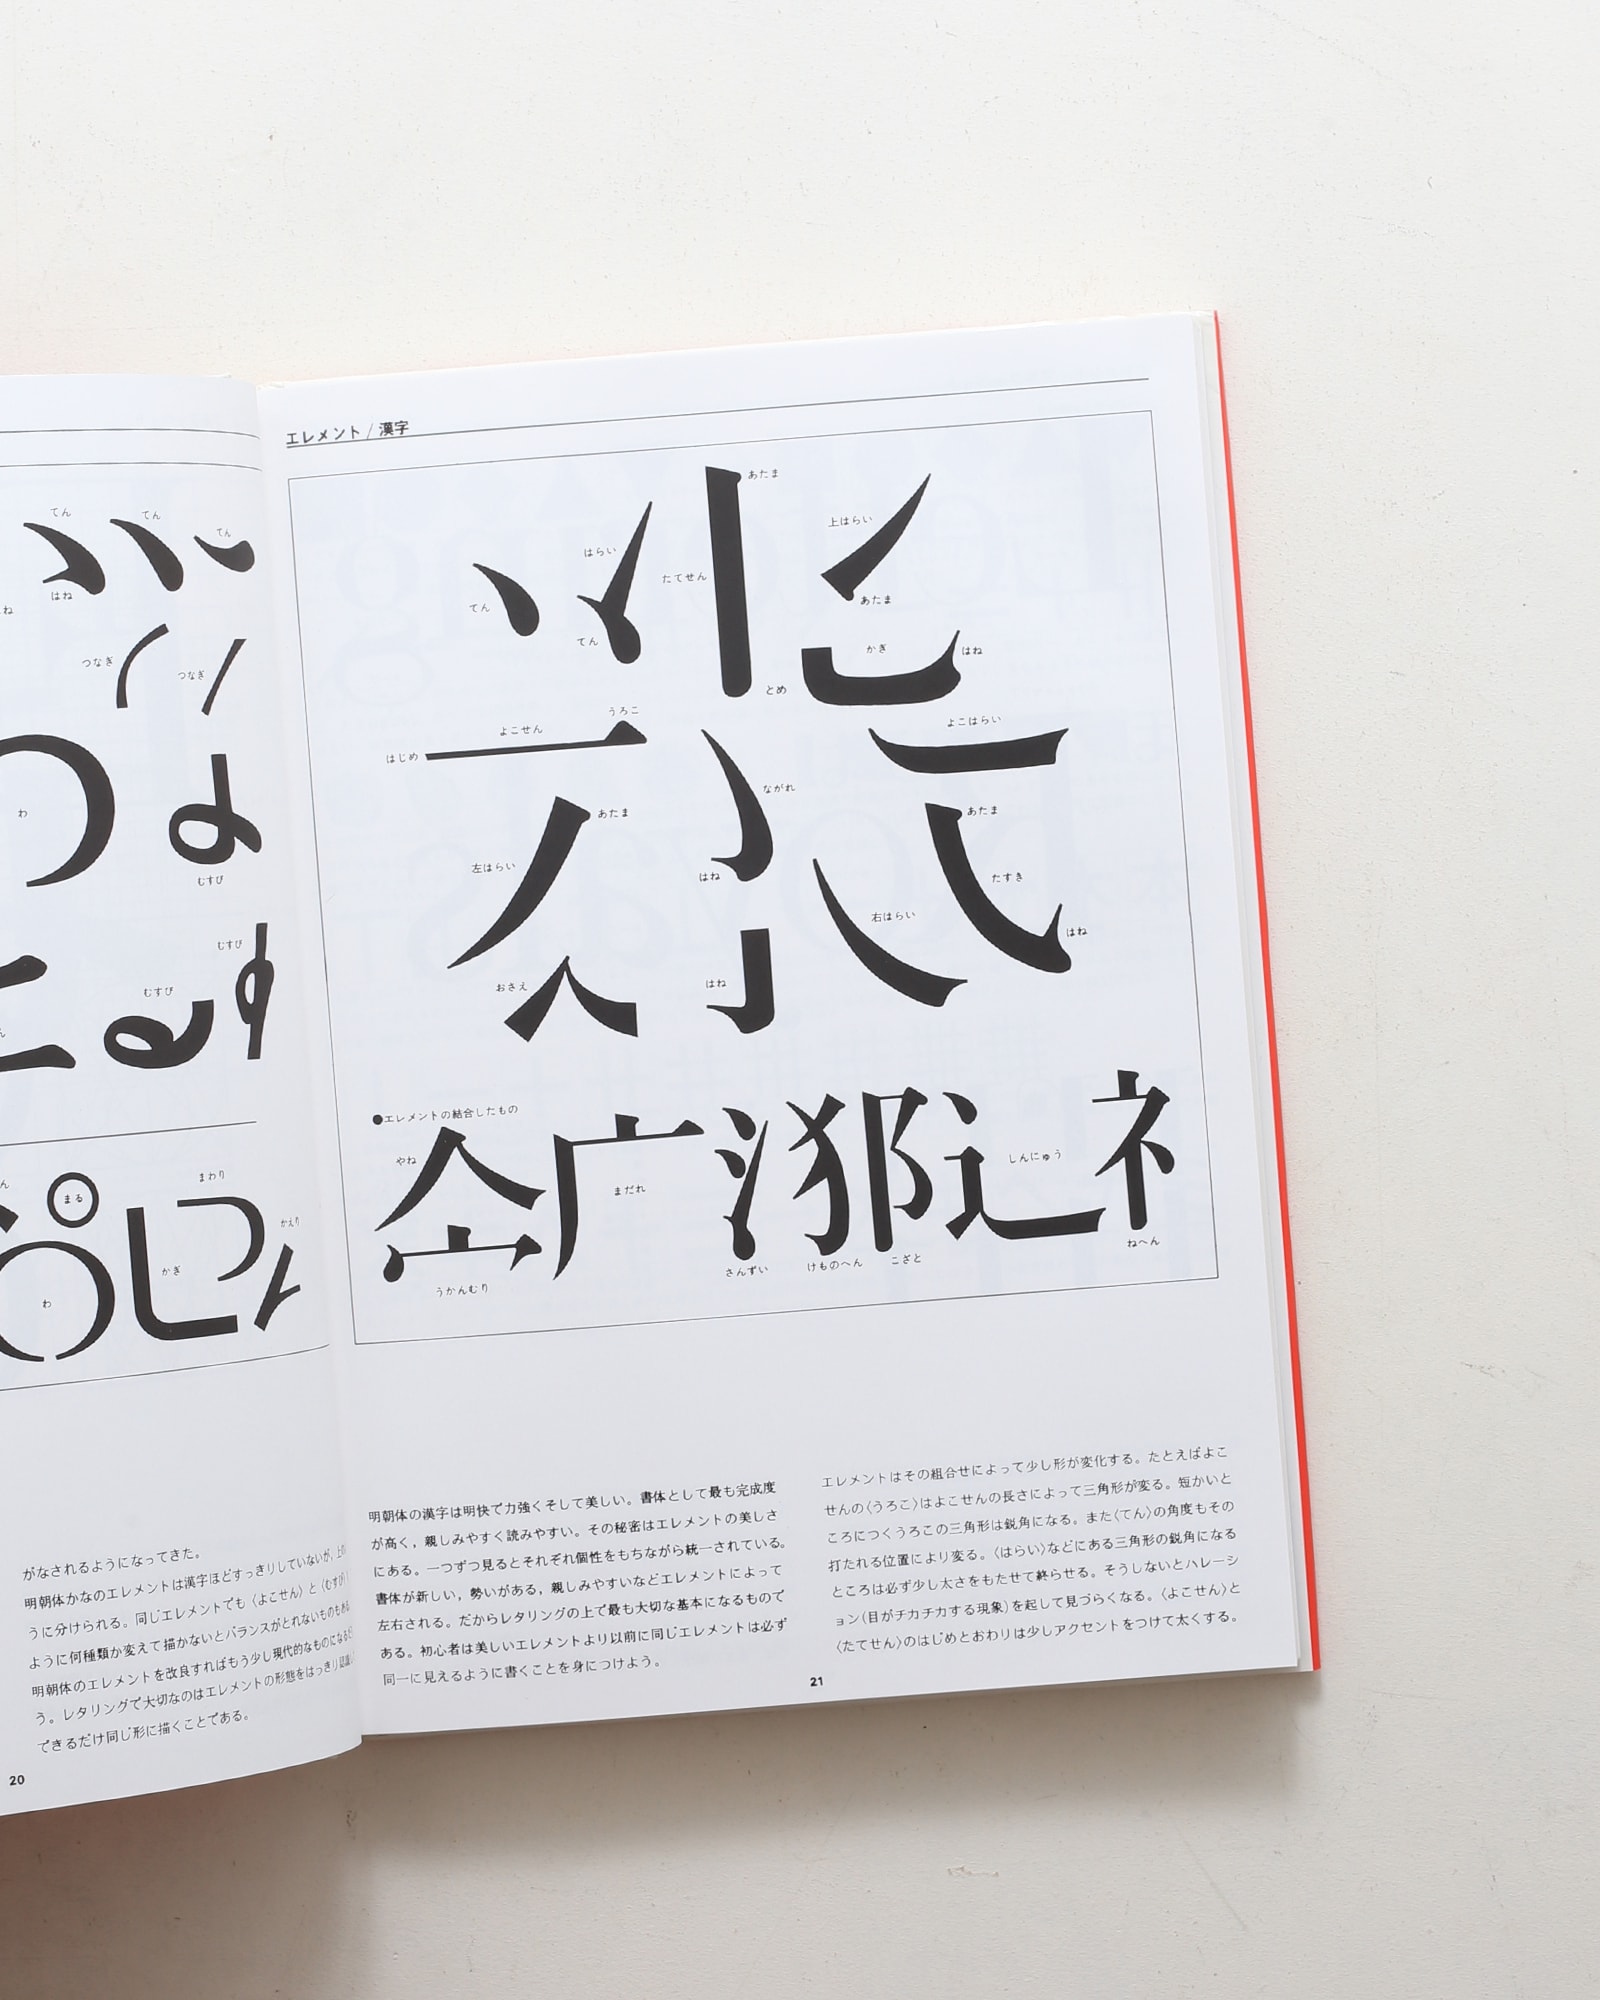 てん
てん
てん
はね
つなぎ
つなぎ
わ
むすび
むすび
むすび
まる
まわり
かえり
かぎ
わ
がなされるようになってきた。
明朝体かなのエレメントは漢字ほどすっきりしていないが,上の
うに分けられる。同じエレメントでも〈よこせん〉と〈むすび〉
ように何種類か変えて描かないとバランスがとれないものもある
明朝体のエレメントを改良すればもう少し現代的なものになるだ
う。レタリングで大切なのはエレメントの形態をはっきり認識し
できるだけ同じ形に描くことである。
20
エレメント / 漢字
あたま
上はらい
はらい
たてせん
てん
あたま
てん
かぎ
はね
とめ
うろこ
よこせん
はじめ
よこはらい
ながれ
あたま
あたま
左はらい
はね
たすき
右はらい
はね
おさえ
はね
●エレメントの結合したもの
やね
まだれ
しんにゅう
うかんむり
さんずい
けものへん
こざと
ねへん
明朝体の漢字は明快で力強くそして美しい。書体として最も完成度
が高く,親しみやすく読みやすい。その秘密はエレメントの美しさ
にある。一つずつ見るとそれぞれ個性をもちながら統一されている。
書体が新しい,勢いがある,親しみやすいなどエレメントによって
左右される。だからレタリングの上で最も大切な基本になるもので
ある。初心者は美しいエレメントより以前に同じエレメントは必ず
同一に見えるように書くことを身につけよう。
エレメントはその組合せによって少し形が変化する。たとえばよこ
せんの〈うろこ〉はよこせんの長さによって三角形が変る。短かいと
ころにつくうろこの三角形は鋭角になる。また〈てん〉の角度もその
打たれる位置により変る。〈はらい〉などにある三角形の鋭角になる
ところは必ず少し太さをもたせて終らせる。そうしないとハレーシ
ョン(目がチカチカする現象)を起して見づらくなる。〈よこせん〉と
〈たてせん〉のはじめとおわりは少しアクセントをつけて太くする。
21